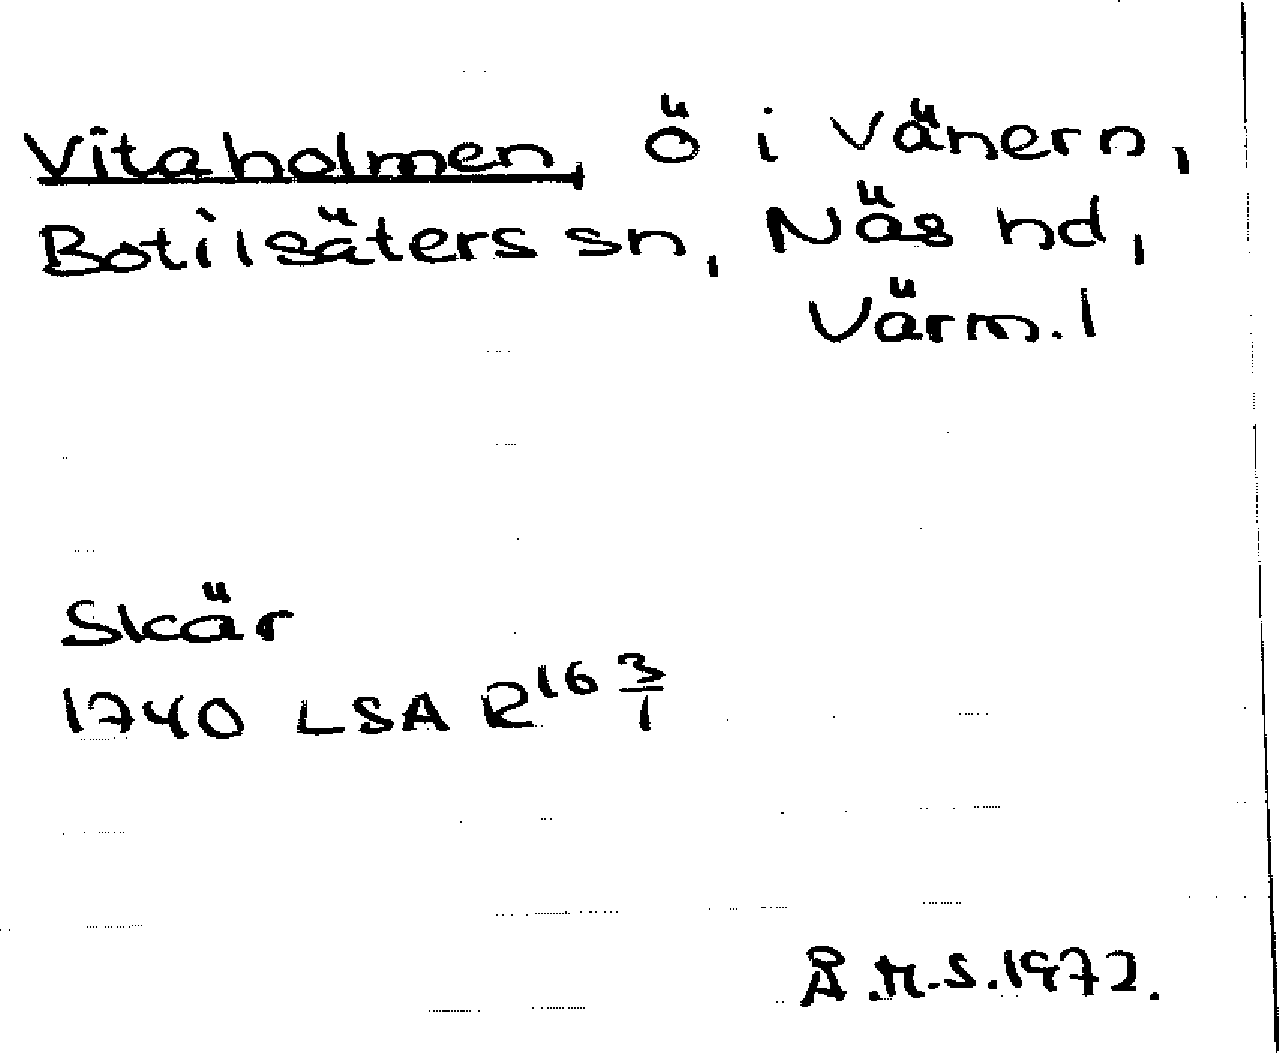 Vitaholmen, ö i Vänern,
Botilsäters sn, Näs hd,
Värm. l
Skär
1740 LSA R16 3/1
Å.H.S. 1972.